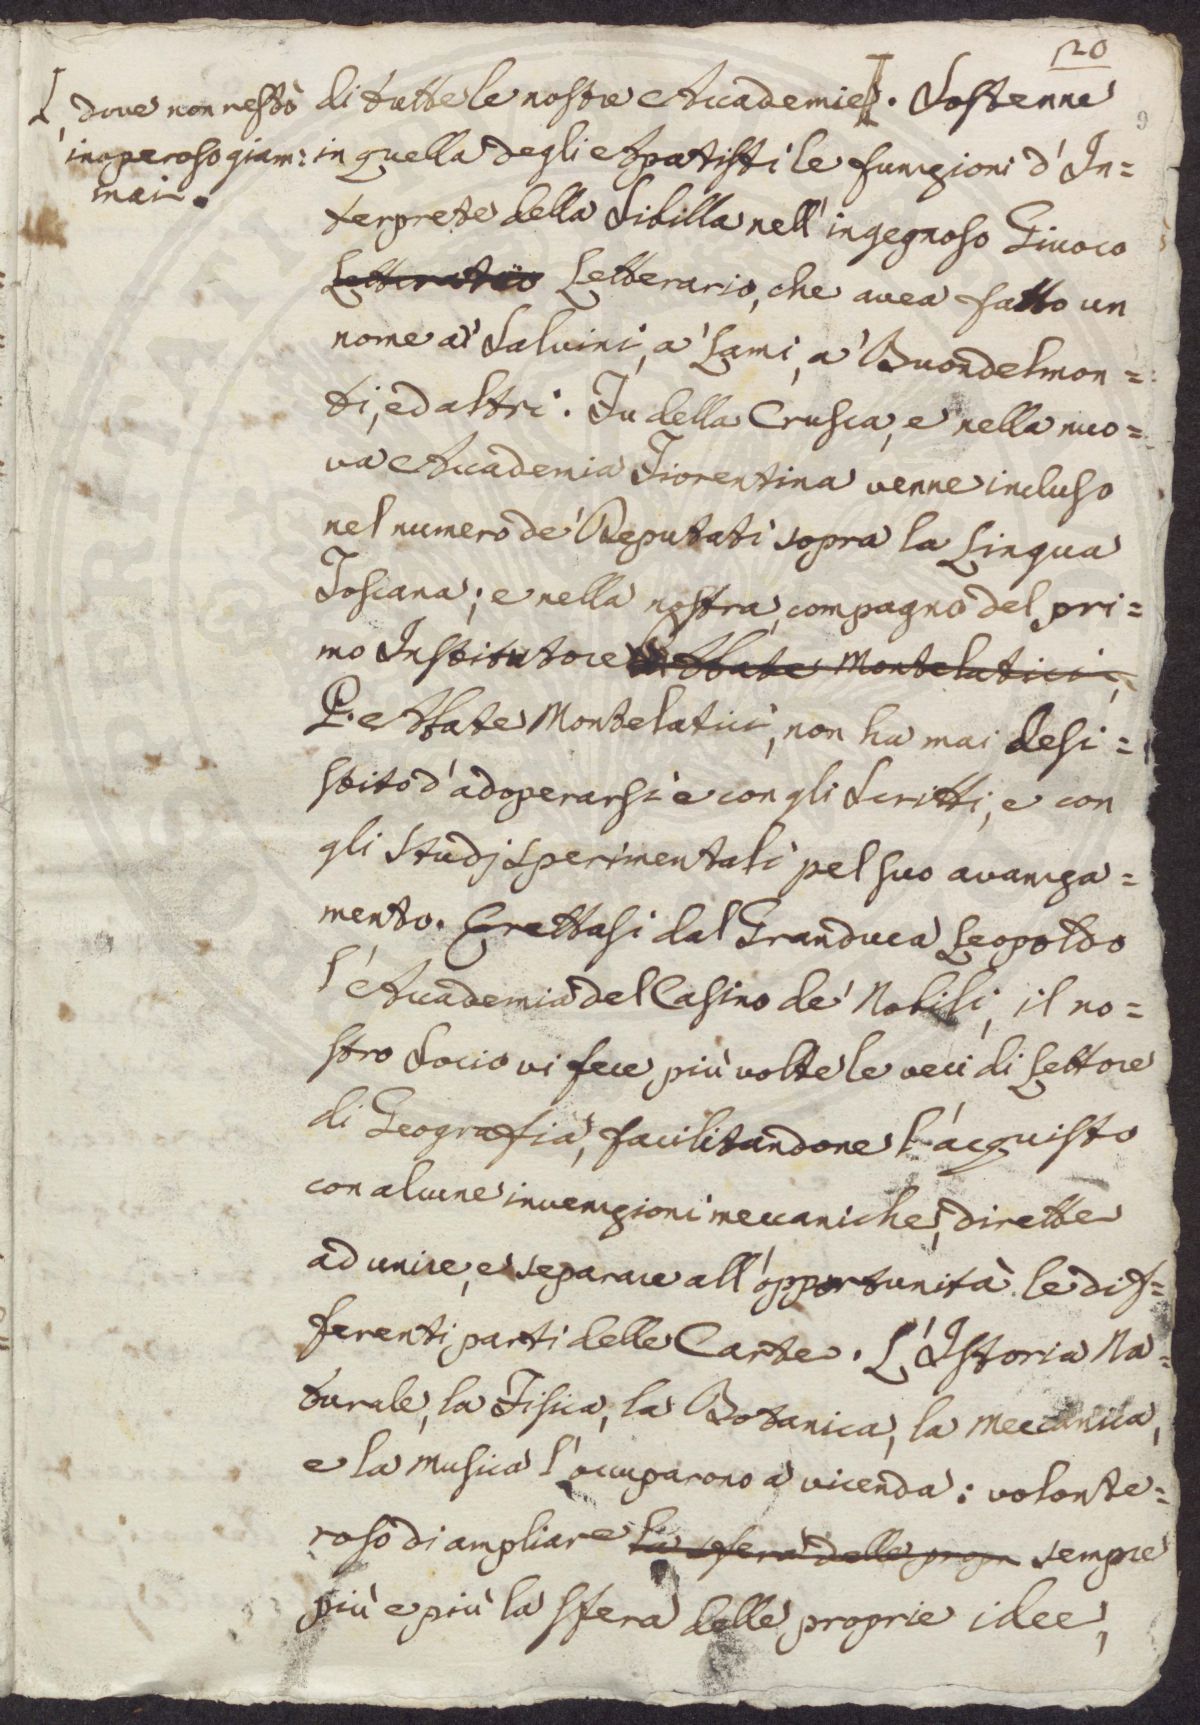 120
dove non restò
inoperoso giam:
mai.
di tutte le nostre Accademie. Sostenne
in quella degli Apatisti le funzioni d'In=
terprete della Sibilla nell'ingegnoso Giuoco
Letterario, che avea fatto un
nome a' Salvini, a' Lami, a' Buondelmon=
ti, ed altri. Fu della Crusca, e nella nuo=
va Accademia Fiorentina venne incluso
nel numero de' Deputati sopra la Lingua
Toscana; e nella nostra, compagno del pri=
mo Institutore Abate Montelatici,
P. Abate Montelatici, non ha mai desi=
stito d'adoperarsi e con gli Scritti, e con
gli studj sperimentali pel suo avanza=
mento. Erettasi dal Granduca Leopoldo
l'Accademia del Casino de' Nobili, il no=
stro Socio vi fece più volte le veci di Lettore
di Geografia, facilitandone l'acquisto
con alcune invenzioni meccaniche, dirette
ad unire, e separare all'opportunità le dif=
ferenti parti delle Carte. L'Istoria Na=
turale, la Fisica, la Botanica, la Meccanica,
e la Musica l'occuparono a vicenda: volonte=
roso di ampliare la sfera delle propr sempre
più e più la sfera delle proprie idee,